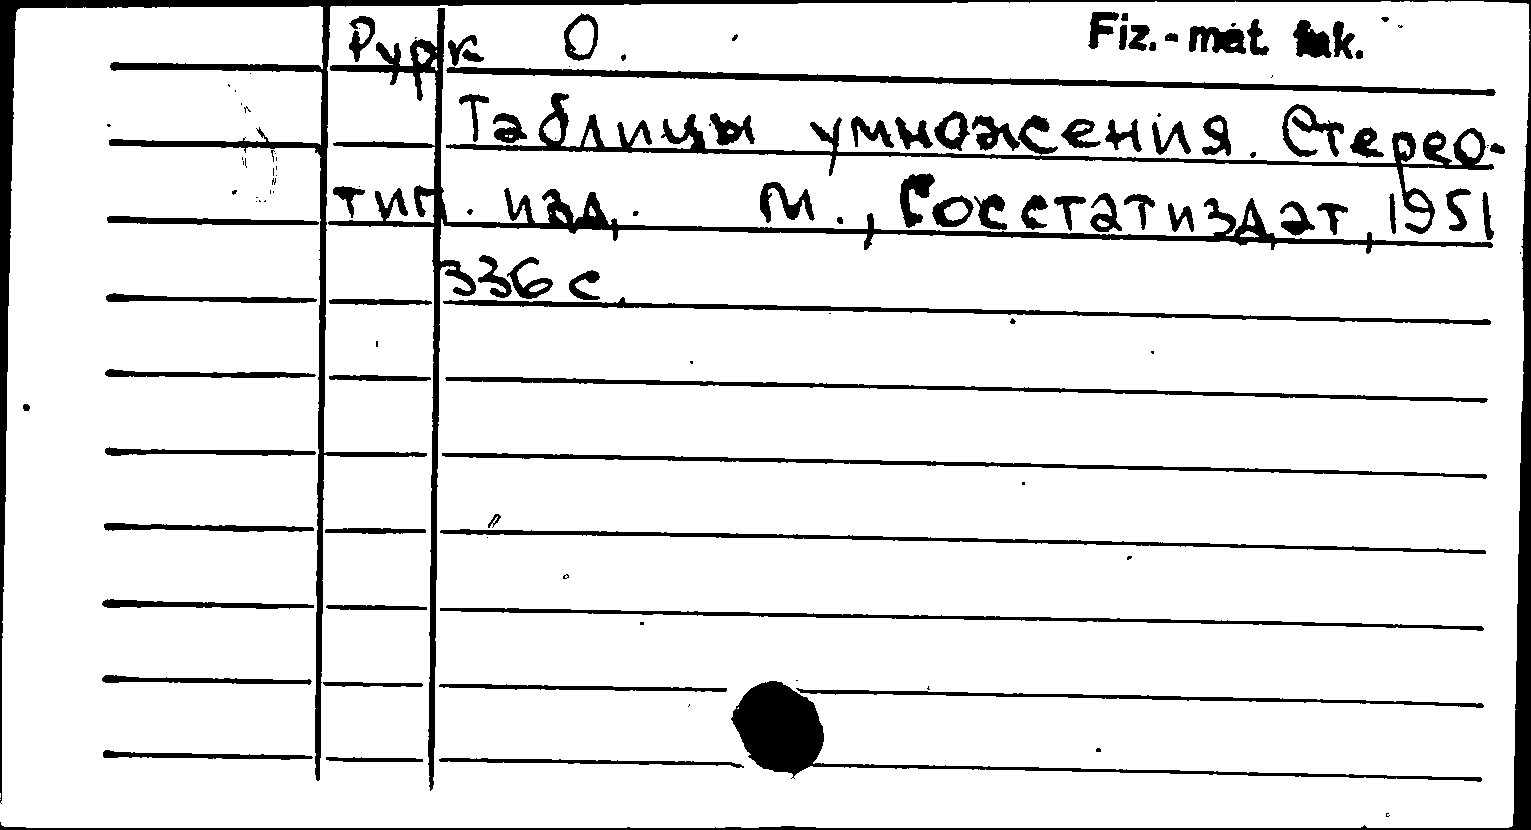 Рурк О. Fiz.-mat. fak.
Таблицы умножения. Стерео-
тип. изд. М., Госстатиздат, 1951
336 с.